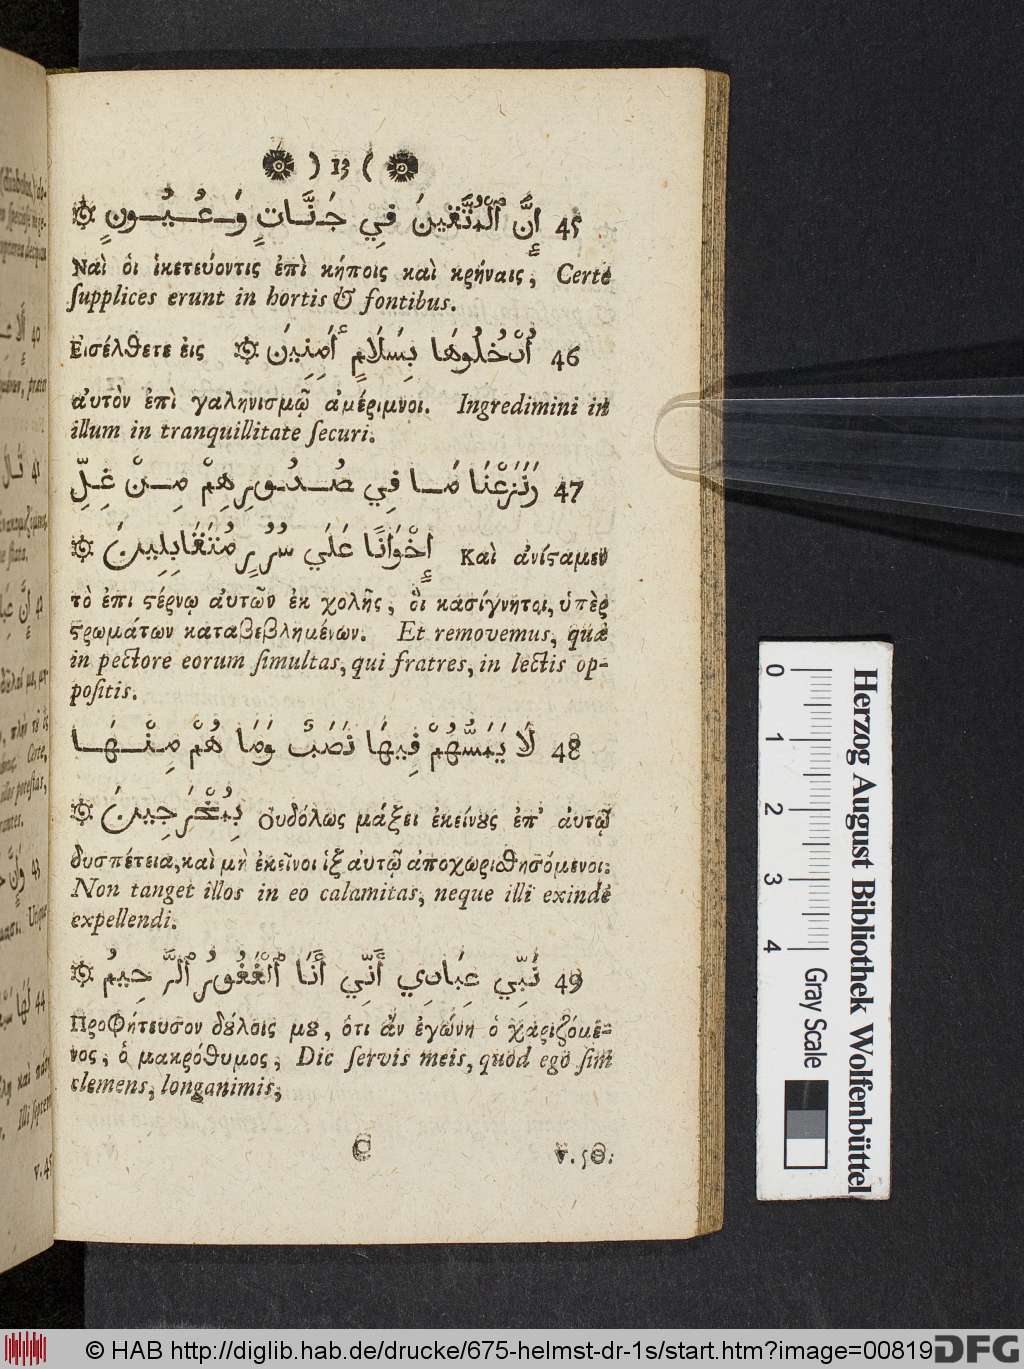 ) 13 (
45 إِنَّ ٱلْمُتَّقِينَ فِي جَنَّاتٍ وَعُيُونٍ ۞
Ναὶ ὁι ἱκετεύοντις ἐπὶ κήποις καὶ κρήναις, Certe
ſupplices erunt in hortis & fontibus.
46 أُدْخُلُوهَا بِسَلَامٍ أَمِنِينَ ۞ Εισέλθετε ἐις
ἀυτὸν ἐπὶ γαληνισμῷ ἀμέριμνοι. Ingredimini in
illum in tranquillitate ſecuri.
47 وَنَزَعْنَا مَا فِي صُدُورِهِمْ مِنْ غِلِّ
إِخْوَانًا عَلَي سُرُرِ مُتَقَابِلِينَ ۞ Καὶ ἀνίϛαμεν
τὸ ἐπι ϛέρνῳ ἀυτῶν ἐκ χολῆς, ὃι κασίγνητοι, ὑπὲρ
ϛρωμάτων καταβεβλημένων. Et removemus, quæ
in pectore eorum ſimultas, qui fratres, in lectis op-
poſitis.
48 لَا يَمَسُّهُمْ فِيهَا نَصَبٌ وَمَا هُمْ مِنْهَا
بِمُخْرَجِينَ ۞ Ουδόλως μάξει ἐκείνȣς ἐπ' ἀυτῷ
δυσπέτεια, καὶ μὴ ἐκεῖνοι ἰξ ἀυτῷ ἀποχωριθησόμενοι.
Non tanget illos in eo calamitas, neque illi exinde
expellendi.
49 نَبِّي عِبَادِي أَنِّي أَنَا ٱلْغَفُورُ ٱلرَّحِيمُ ۞
Προφήτευσον δȣ́λοις μȣ, ὁτι ἀν ἐγώνη ὁ χαριζόμε-
νος, ὁ μακρόθυμος, Dic ſervis meis, quod ego ſim
clemens, longanimis,
C
v. 50.
0 1 2 3 4
Gray Scale
Herzog August Bibliothek Wolfenbüttel
© HAB http://diglib.hab.de/drucke/675-helmst-dr-1s/start.htm?image=00819
DFG